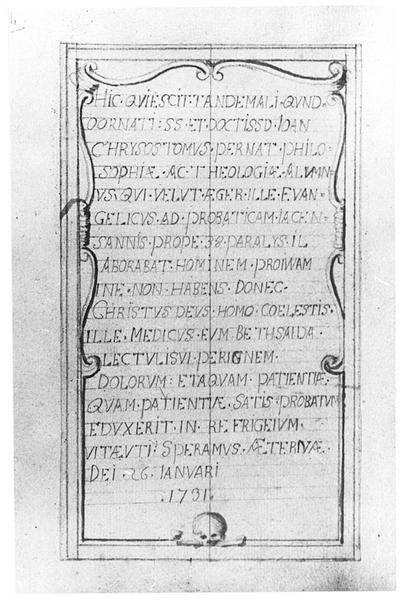 HIC · QVIESCIT · TANDEM ALI · QVND=
OORNATI · SS · ET · DOCTISSD · IOAN
CHRYSOSTOMVS · PERNAT · PHILO=
SOPHIÆ · AC · THEOLOGIÆ · ALVMN=
VS · QVI · VELVT · ÆGER · ILLE · EVAN=
GELICVS · AD · PROBATICAM · IACEN=
SANNIS · PROPE · 38 · PARALYS · IL
LABORABAT · HOMINEM · PROIWAM
INE · NON · HABENS · DONEC ·
CHRISTVS DEVS · HOMO · COELESTIS ·
ILLE · MEDICVS · EVM BETHSAIDA
LECTVLISVI PERIGNEM ·
DOLORVM : ETAQVAM · PATIENTIÆ ·
QVAM · PATIENTIÆ · SATIS · PROBATVM
EDVXERIT · IN · REFRIGEIVM ·
VITÆVTI : SPERAMVS · ÆTERNÆ ·
DEI · 26 · IANVARI
· 1731 ·